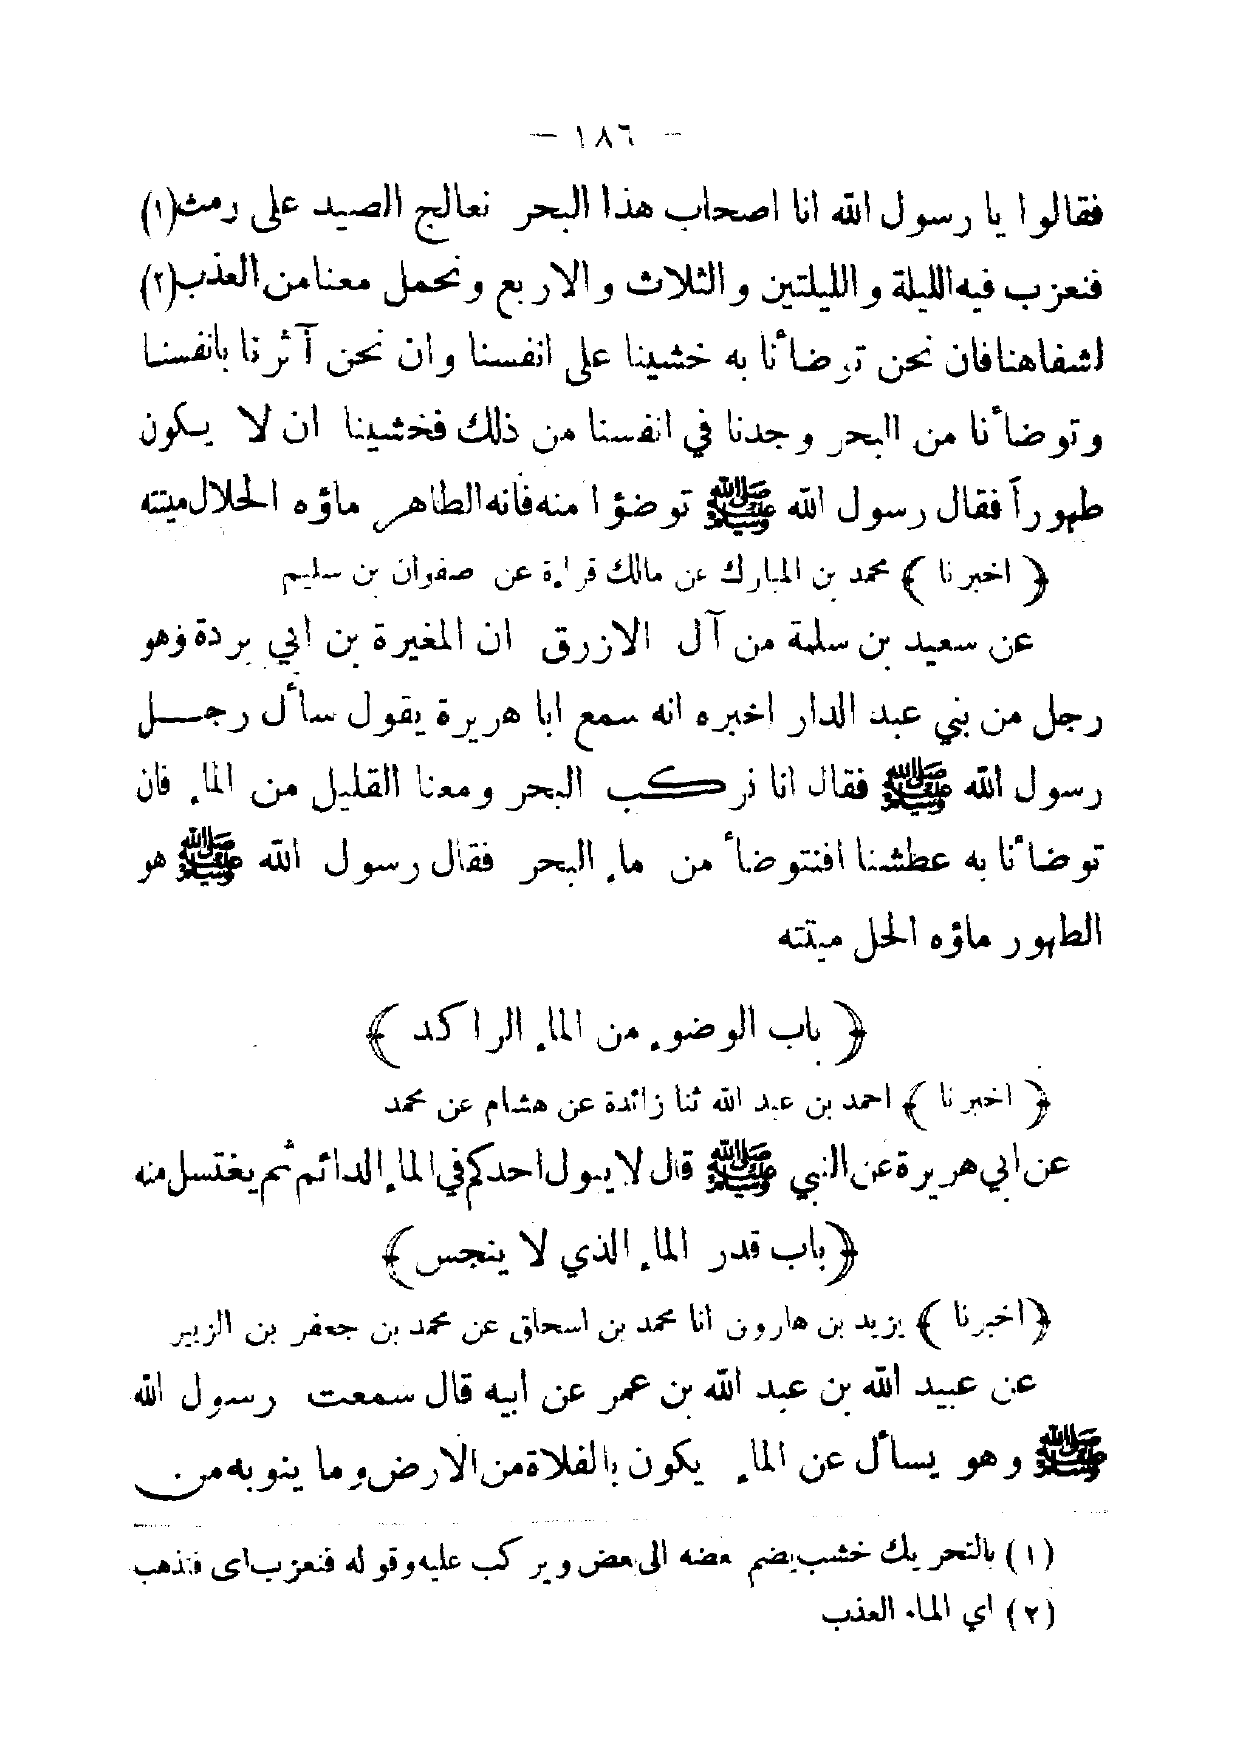 — ١٨٦ —
فقالوا يا رسول الله انا اصحاب هذا البحر نعالج الصيد على رمث(١)
فنعزب فيه الليلة والليلتين والثلاث والاربع ونحمل معنا من العذب(٢)
لشفاهنا فان نحن توضأنا به خشينا على انفسنا وان نحن آثرنا بانفسنا
وتوضأنا من البحر وجدنا في انفسنا من ذلك فخشينا ان لا يكون
طهوراً فقال رسول الله ﷺ توضؤا منه فانه الطاهر ماؤه الحلال ميتته
﴿ اخبرنا ﴾ محمد بن المبارك عن مالك قراءة عن صفوان بن سليم
عن سعيد بن سلمة من آل الازرق ان المغيرة بن ابي بردة وهو
رجل من بني عبد الدار اخبره انه سمع ابا هريرة يقول سأل رجـل
رسول الله ﷺ فقال انا نركب البحر ومعنا القليل من الماء فان
توضأنا به عطشنا افنتوضأ من ماء البحر فقال رسول الله ﷺ هو
الطهور ماؤه الحل ميتته
﴿ باب الوضوء من الماء الراكد ﴾
﴿ اخبرنا ﴾ احمد بن عبد الله ثنا زائدة عن هشام عن محمد
عن ابي هريرة عن النبي ﷺ قال لا يبول احدكم في الماء الدائم ثم يغتسل منه
﴿باب قدر الماء الذي لا ينجس﴾
﴿اخبرنا ﴾ يزيد بن هارون انا محمد بن اسحاق عن محمد بن جعفر بن الزبير
عن عبيد الله بن عبد الله بن عمر عن ابيه قال سمعت رسول الله
ﷺ وهو يسأل عن الماء يكون بالفلاة من الارض وما ينوبه من
(١) بالتحريك خشب يضم بعضه الى بعض ويركب عليه وقوله فنعزب اى فنذهب
(٢) اي الماء العذب